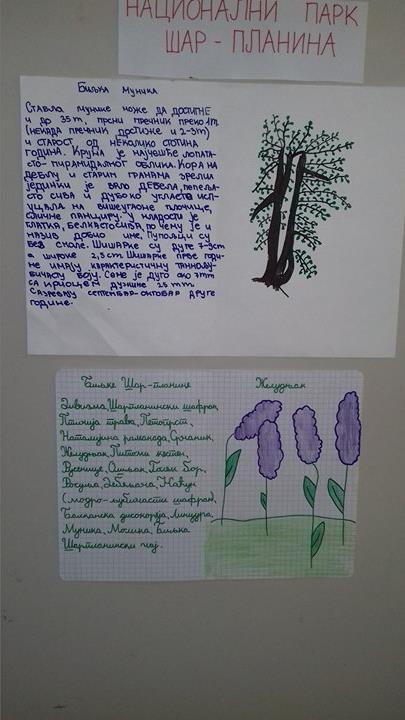 НАЦИОНАЛНИ ПАРК
ШАР - ПЛАНИНА
Биљка муника
Стабла мунике може да достигне
и до 35m, прсни пречник преко 1m
(некада пречник достиже и 2-3m)
и старост од неколико стотина
година. Крошња је најчешће лопата-
сто-пирамидалног облика. Кора на
деблу и старим гранама зрелих
јединки је дебела, пепеља-
сто сива и дубоко угласта испу-
цала на вишеугаоне плочице,
сличне панциру. У младости је
глатка, белкастосива, по чему је и
назив добио име. Пупољци су
без смоле. Шишарке су дуге 7-9cm
а широке 2,5cm. Шишарке прве годи-
не имају карактеристичну тамнољу-
бичасту боју. Семе је дуго око 7mm
са крилцем дужине 25 mm.
Сазревају септембар-октобар друге
године.
Биљке Шар-планине
Желудњак
Дивизма, Шарпланински шафран,
Паločија трава, Петопрст,
Наталијина рамонда, Срчаник,
Желудњак, Питоми кестен,
Оштљак, Бели бор,
Дебељача,
(модро-љубичасти шафран),
Балканска диоскореја, Линцура,
Муника, Молика, Биљка
Шарпланински чај.